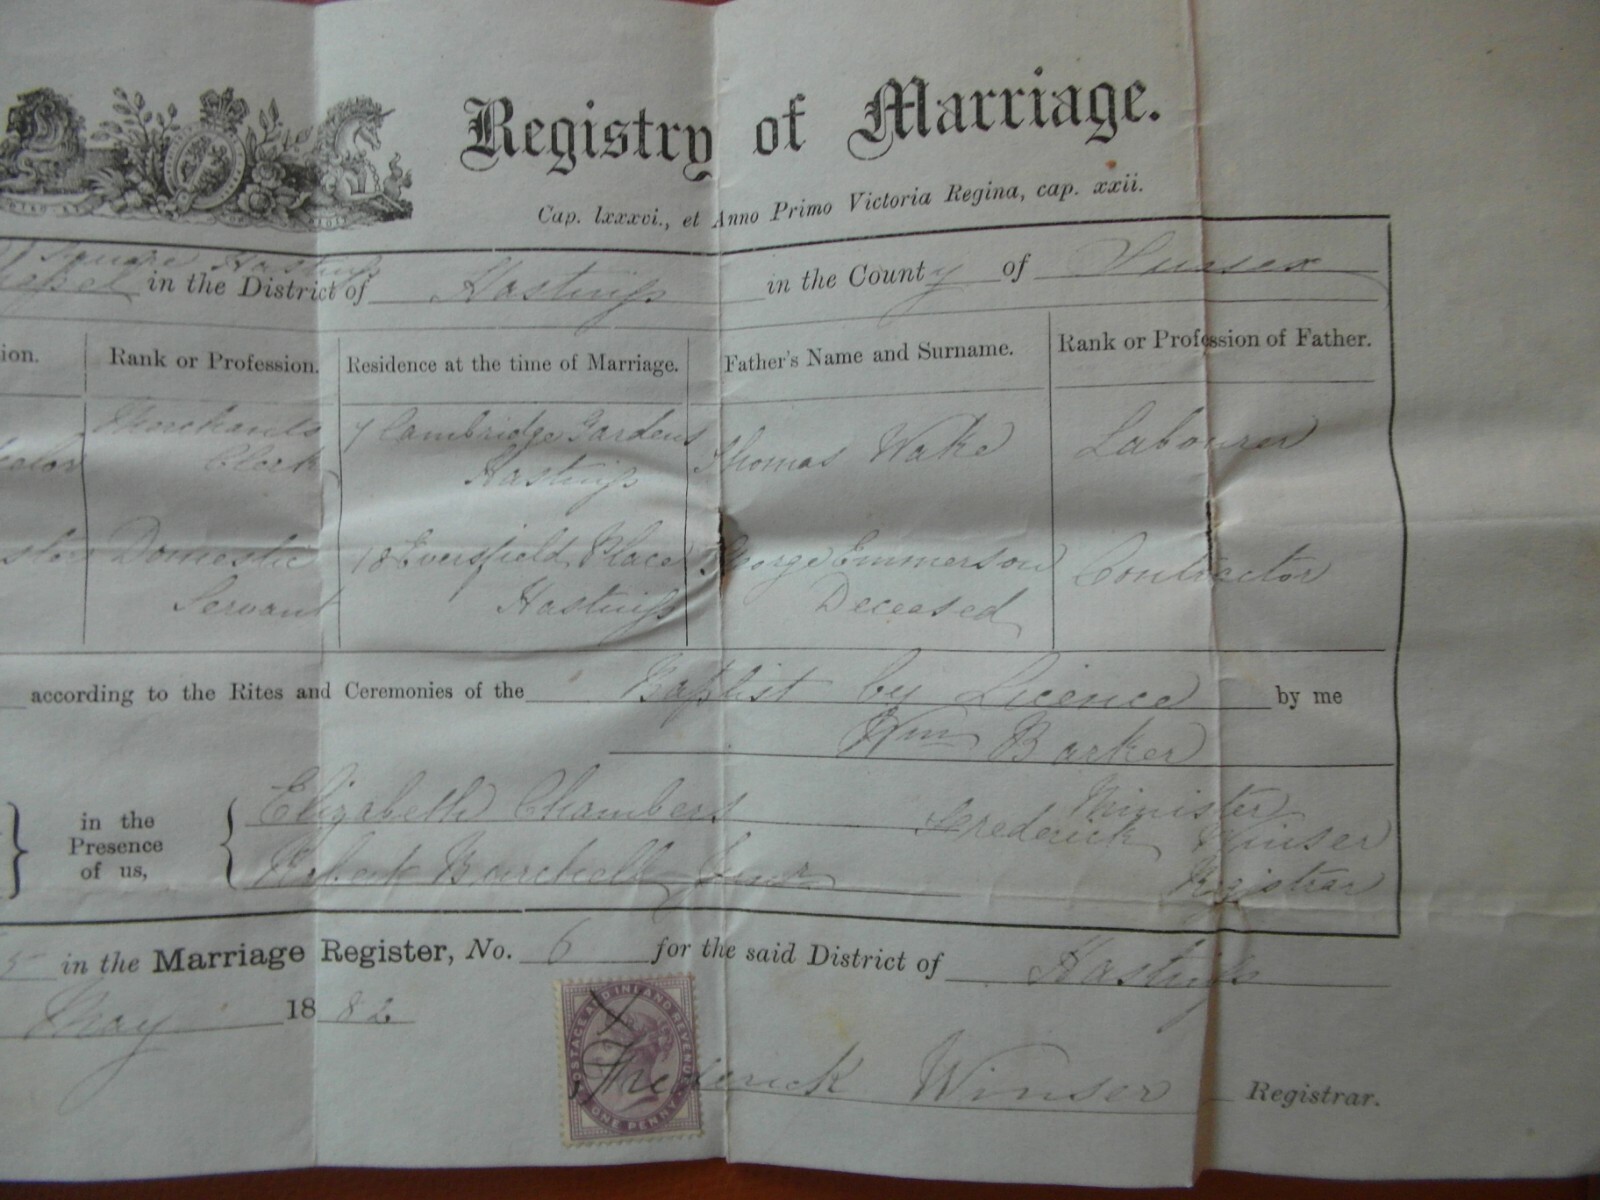 Registry of Marriage.
Cap. lxxxvi., et Anno Primo Victoria Regina, cap. xxii.
Square Hastings
in the District of Hastings in the County of Sussex
ion. Rank or Profession. Residence at the time of Marriage. Father's Name and Surname. Rank or Profession of Father.
Merchants 7 Cambridge Gardens Thomas Wake Labourer
elor Clerk Hastings
ster Domestic 18 Eversfield Place George Emmerson Contractor
Servant Hastings Deceased
according to the Rites and Ceremonies of the Baptist by Licence by me
Wm Barker
Minister
in the Presence of us, Elizabeth Chambers Frederick Winser
Robert Burchell Junr Registrar
5 in the Marriage Register, No. 6 for the said District of Hastings
May 1882
POSTAGE AND INLAND REVENUE
ONE PENNY
Frederick Winser Registrar.